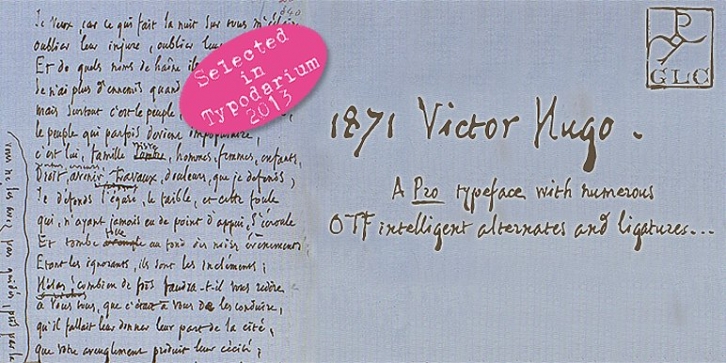 Je veux, car ce qui fait la nuit sur vous m'éclaire
oublier leur injure, oublier leur
Et de quels noms de haine ils
Je n'ai plus d'ennemis quand
mais surtout c'est le peuple
le peuple qui parfois devient impopulaire,
c'est lui, famille triste, hommes, femmes, enfants,
Droit, avenir, travaux, douleurs, que je défends ;
Je défends l'égaré, le faible, et cette foule
qui, n'ayant jamais eu de point d'appui, s'écroule
Et tombe folle au fond des noirs événements
Etant les ignorants, ils sont les incléments ;
Hélas ! combien de fois faudra-t-il vous redire
à vous tous, que c'était à vous de les conduire,
qu'il fallait leur donner leur part de la cité,
que votre aveuglement produit leur cécité ;
Selected
in
Typodarium
2013
GLC
1871 Victor Hugo .
A Pro typeface with numerous
OTF intelligent alternates and ligatures...